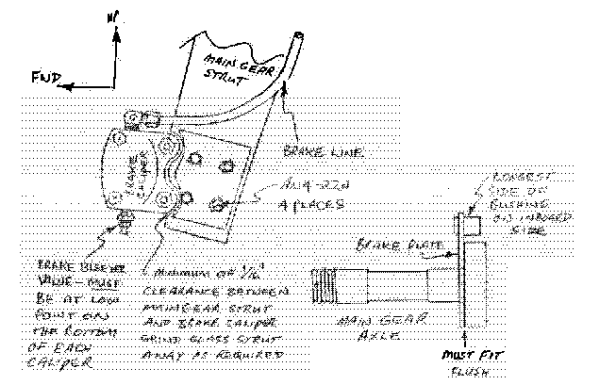 UP
FWD
MAIN GEAR
STRUT
BRAKE LINE
BRAKE
CALIPER
AN4-22A
4 PLACES
LONGEST
SIDE OF
BUSHING
ON INBOARD
SIDE
BRAKE PLATE
BRAKE BLEEDER
VALVE - MUST
BE AT LOW
POINT ON
THE BOTTOM
OF EACH
CALIPER
MINIMUM OF 1/16"
CLEARANCE BETWEEN
MAIN GEAR STRUT
AND BRAKE CALIPER
GRIND GLASS STRUT
AWAY AS REQUIRED
MAIN GEAR
AXLE
MUST FIT
FLUSH